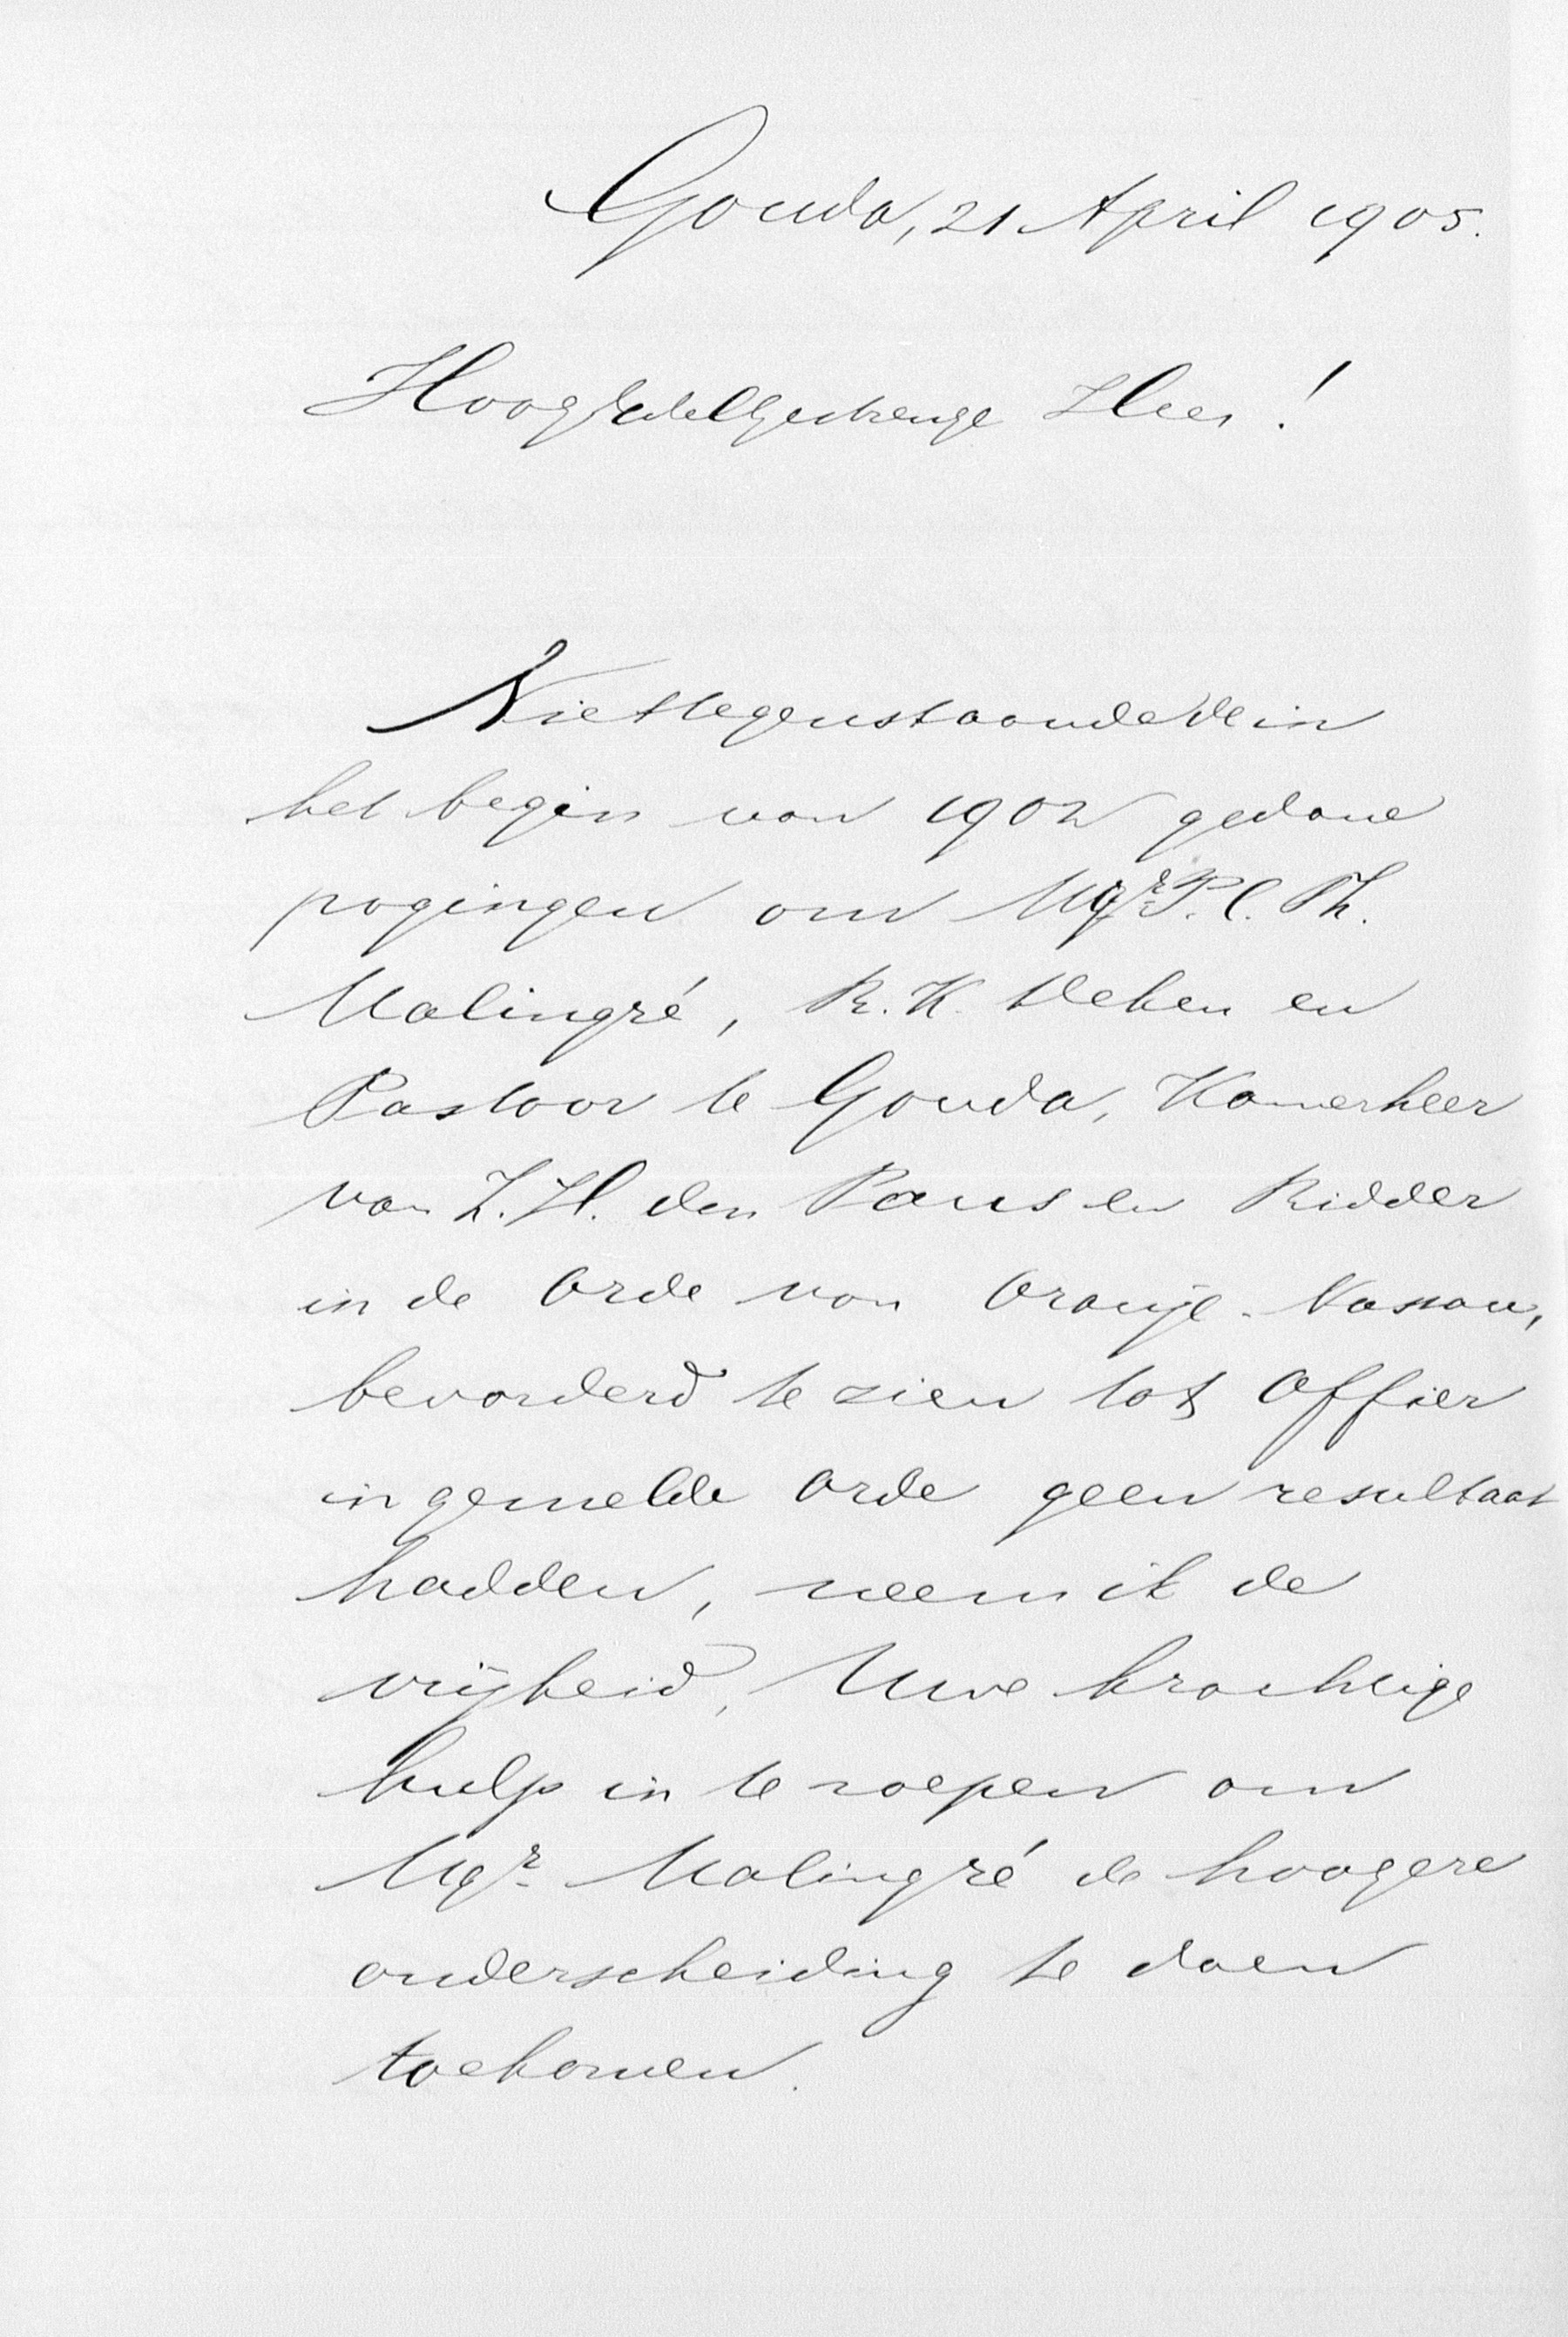 Gouda, 21 April 1905.
HoogEdelGestrenge Heer!
Niettegenstaande de in
het begin van 1902 gedane
pogingen om Mgr. P. C. Th.
Malingré, R. K. Deken en
Pastoor te Gouda, Kamerheer
van Z. H. den Paus en Ridder
in de Orde van Oranje-Nassau,
bevorderd te zien tot Offier
in gemelde Orde geen resultaat
hadden, neem ik de
vrijheid, Uwe krachtige
hulp in te roepen om
Mgr. Malingré de hoogere
onderscheiding te doen
toekomen.